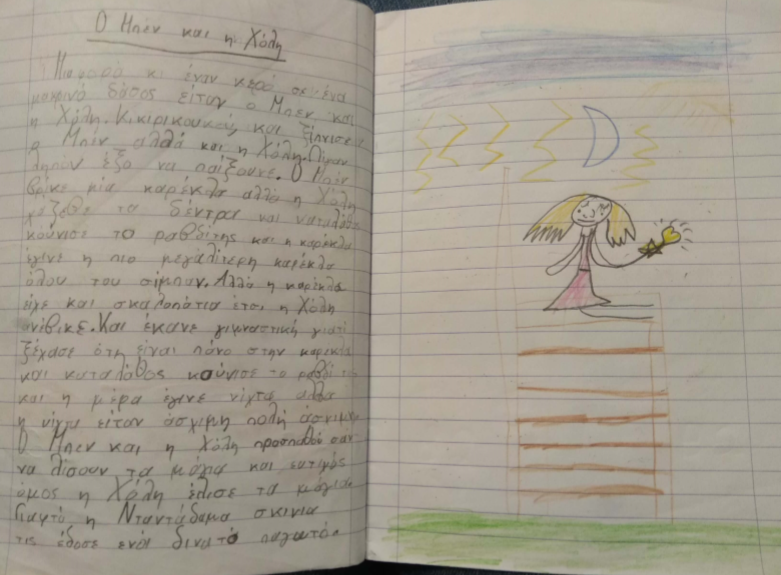 Ο Μπεν και η Χόλη
Μια φορά κι έναν κερό σε ένα
μακρινό δάσος είταν ο Μπεν και
η Χόλη. Κικιρικουκού, και ξίπνισε
ο Μπέν αλλά και η Χόλη. Πίραν
έξο να παίξουνε. Ο Μπέν
βρίκε μία καρέκλα αλλά η Χόλη
τα δέντρα και καταλάθος
κούνισε το ραβδίτης και η καρέκλα
έγινε η πιο μεγαλίτερη καρέκλα
όλου του σίμπαν. Αλλά η καρέκλα
είχε και σκαλοπάτια έτσι η Χόλη
ανίβικε. Και έκανε γιμναστική γιατί
ξέχασε ότη είναι πάνο στην καρέκλα
και καταλάθος κούνισε το ραβδί της
και η μέρα έγινε νίχτα αλλα
η νίχτα είταν άσχιμη πολή άσχιμη
Ο Μπέν και η Χόλη προσπαθούσαν
να λίσουν τα μάγια και εφτιχός
όμος η Χόλη έλισε τα μάγια.
Γιαφτό η Νταντάδαμα
τις έδοσε ενα δινατό παγωτό.